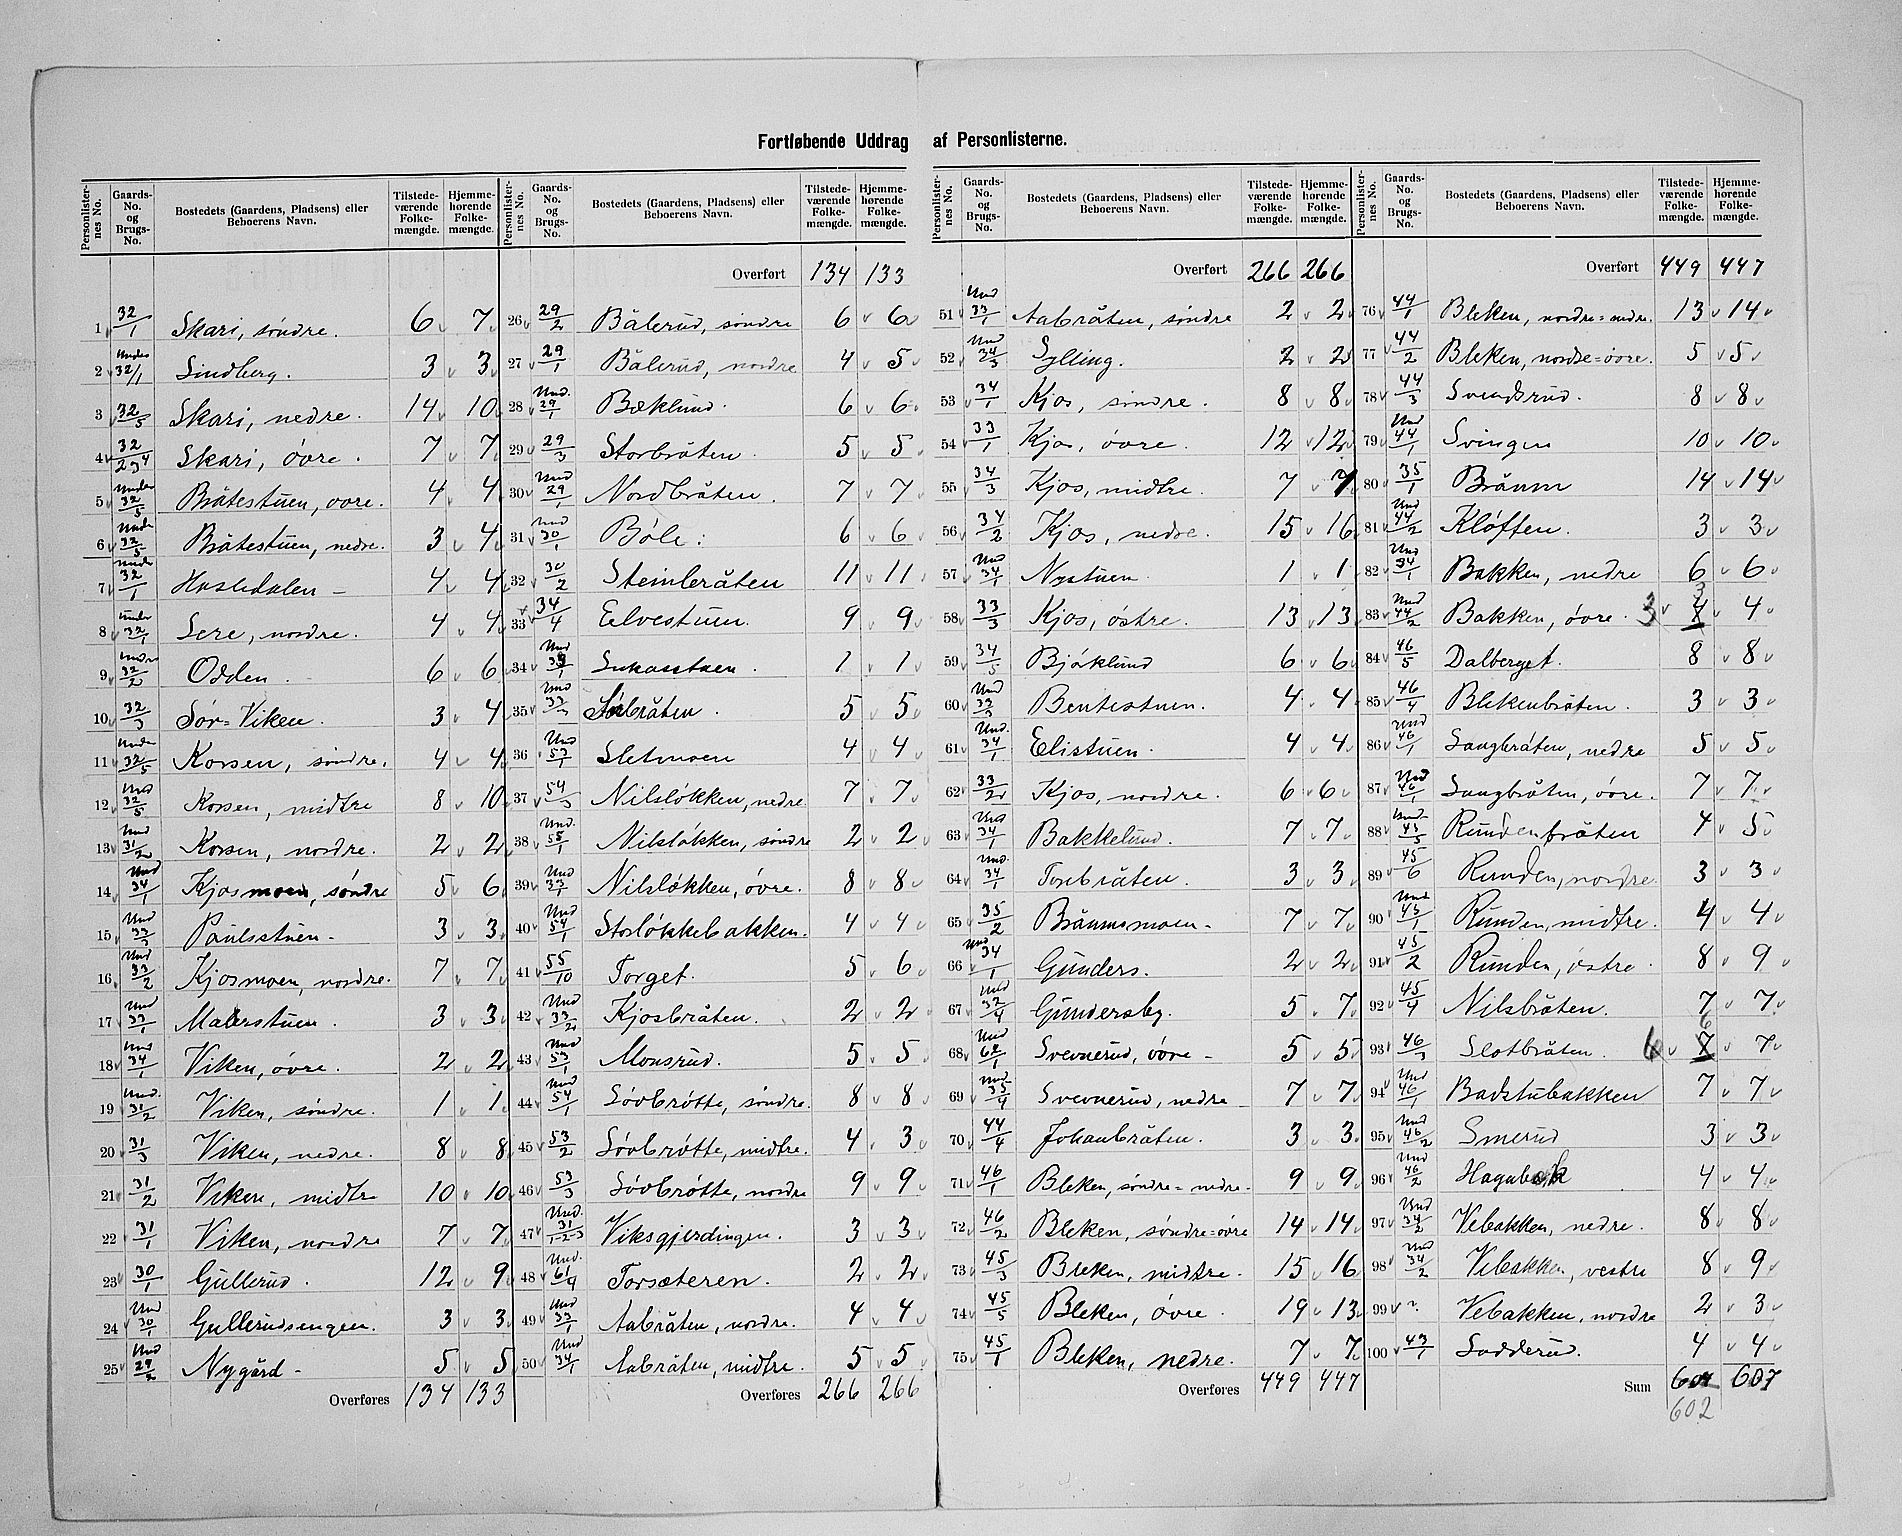 Fortløbende Uddrag af Personlisterne.
Personlister-nes No. | Gaards-No. og Brugs-No. | Bostedets (Gaardens, Pladsens) eller Beboerens Navn. | Tilstede-værende Folke-mængde. | Hjemme-hørende Folke-mængde.
1 32/1 Skari, søndre. 6 7
2 Under 32/1 Lindberg. 3 3
3 32/5 Skari, nedre. 14 10
4 32/2 3 4 Skari, övre. 7 7
5 Under 32/5 Bråtestuen, övre. 4 4
6 Under 32/5 Bråtestuen, nedre. 3 4
7 Under 32/1 Hasledalen – 4 4
8 Under 32/1 Lere, nordre. 4 4
9 Undre 32/2 Odden. 6 6
10 32/3 Sør=Viken. 3 4
11 Under 32/5 Korsen, søndre. 4 4
12 Und 32/5 Korsen, midtre 8 10
13 Und 31/2 Korsen, nordre. 2 2
14 Und 34/1 Kjosmoen, søndre 5 6
15 Und 33/3 Paulsstuen – 3 3
16 Und 33/2 Kjosmoen, nordre. 7 7
17 Und 33/1 Malerstuen. 3 3
18 Und 34/1 Viken, övre. 2 2
19 Und. 31/2 Viken, søndre. 1 1
20 31/3 Viken, nedre. 8 8
21 31/2 Viken, midtre 10 10
22 31/1 Viken, nordre 7 7
23 30/1 Gullerud. 12 9
24 Und 30/1 Gullerudsengen. 3 3
25 Und 29/2 Nygård – 5 5
Overføres 134 133
Personlister-nes No. | Gaards-No. og Brugs-No. | Bostedets (Gaardens, Pladsens) eller Beboerens Navn. | Tilstede-værende Folke-mængde. | Hjemme-hørende Folke-mængde.
Overført 134 133
26 29/2 Bålerud, søndre 6 6
27 29/1 Bålerud, nordre 4 5
28 Und. 29/1 Bæklund. 6 6
29 29/3 Storbråten. 5 5
30 Und 29/1 Nordbråten. 7 7
31 Und 30/1 Bøle: 6 6
32 30/2 Steinbråten 11 11
33 34/4 Elvestuen. 9 9
34 Und Lukasstuen. 1 1
35 Und 33/3 Sörbråten. 5 5
36 Und 53/1 Sletmoen 4 4
37 54/3 Nilsløkken, nedre 7 7
38 Und. 55/1 Nilsløkken, søndre 2 2
39 Und 33/1 Nilsløkken, övre. 8 8
40 Und 54/1 Storløkkebakken. 4 4
41 55/10 Torget. 5 6
42 Und 33/2 Kjosbråten. 2 2
43 Und 53/1 Monsrud. 5 5
44 Und 54/1 Lövbråtte, søndre. 8 8
45 53/2 Lövbråtte, midtre. 4 3
46 53/3 Lövbråtte, nordre 9 9
47 Und. 31/1-2-3 Viksgjerdingen. 3 3
48 Und. 61/4 Torsæteren. 2 2
49 Und 33/1 Aabråten, nordre. 4 4
50 Und 34/1 Aabråten, midtre. 5 5
Overføres 266 266
Personlister-nes No. | Gaards-No. og Brugs-No. | Bostedets (Gaardens, Pladsens) eller Beboerens Navn. | Tilstede-værende Folke-mængde. | Hjemme-hørende Folke-mængde.
Overført 266 266
51 Und 33/1 Aabråten, søndre 2 2
52 Und 34/3 Sylling. 2 2
53 34/1 Kjos, søndre. 8 8
54 33/1 Kjos, övre. 12 12
55 34/3 Kjos, midtre. 7 7
56 34/2 Kjos, nedre. 15 16
57 Und 34/1 Nystuen. 1 1
58 33/3 Kjos, östre. 13 13
59 34/5 Bjöklund 6 6
60 Und 33/3 Bentestuen. 4 4
61 Und. 34/1 Elistuen. 4 4
62 33/2 Kjos, nordre. 6 6
63 Und 34/1 Bakkelund. 7 7
64 Und. 34/1 Torebråten. 3 3
65 35/2 Bråumsmoen – 7 7
66 Und 34/1 Gunders. 2 2
67 Und 32/4 Gundersby. 5 7
68 Und 62/1 Svevnerud, övre – 5 5
69 Und 35/4 Svevnerud, nedre 7 7
70 44/4 Johanbråten. 3 3
71 46/1 Bleken, søndre=nedre. 9 9
72 46/2 Bleken, søndre=övre 14 14
73 45/3 Bleken, midtre. 15 16
74 45/5 Bleken, övre. 19 13
75 45/1 Bleken, nedre. 7 7
Overføres 449 447
Personlister-nes No. | Gaards-No. og Brugs-No. | Bostedets (Gaardens, Pladsens) eller Beboerens Navn. | Tilstede-værende Folke-mængde. | Hjemme-hørende Folke-mængde.
Overført 449 447
76 44/1 Bleken, nordre=nedre. 13 14
77 44/2 Bleken, nordre=övre. 5 5
78 44/3 Svendsrud. 8 8
79 Und 44/1 Svingen 10 10
80 35/1 Bråum 14 14
81 Und 44/2 Kløften. 3 3
82 Und 34/1 Bakken, nedre 6 6
83 Und 44/2 Bakken, övre. 3 4 3 4
84 46/5 Dalberget. 8 8
85 46/4 Blekenbråten. 3 3
86 Und 46/1 Langbråten, nedre 5 5
87 Und 46/1 Langbråten, övre. 7 7
88 Und 45/5 Rundenbråten 4 5
89 45/6 Runden, nordre. 3 3
90 Und 45/1 Runden, midtre. 4 4
91 45/2 Runden, östre. 8 9
92 45/4 Nilsbråten. 7 7
93 46/3 Slotbråten. 6 7 6 7
94 Und 46/1 Badstubakken 7 7
95 Und 46/2 Smerud 3 3
96 Und 46/2 Hagabak 4 4
97 Und 34/2 Vebakken, nedre. 8 8
98 Und 34/2 Vebakken, vestre 8 9
99 ". Vebakken, nordre 2 3
100 43/1 Ladderud. 4 4
Sum 604 607
602